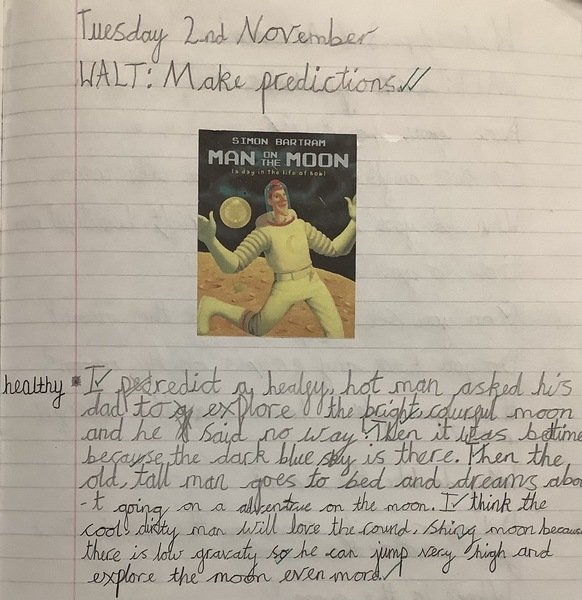 Tuesday 2nd November
WALT: Make predictions
SIMON BARTRAM
MAN ON THE MOON
(a day in the life of Bob)
healthy
I predict a healey, hot man asked his
dad to explore the bright, colurful moon
and he said no way. Then it was bedtime
because the dark blue sky is there. Then the
old, tall man goes to bed and dreams abou
-t going on a adventrue on the moon. I think the
cool, dirty man will love the round, shing moon becaus
there is low gravaty so he can jump very high and
explore the moon even more.